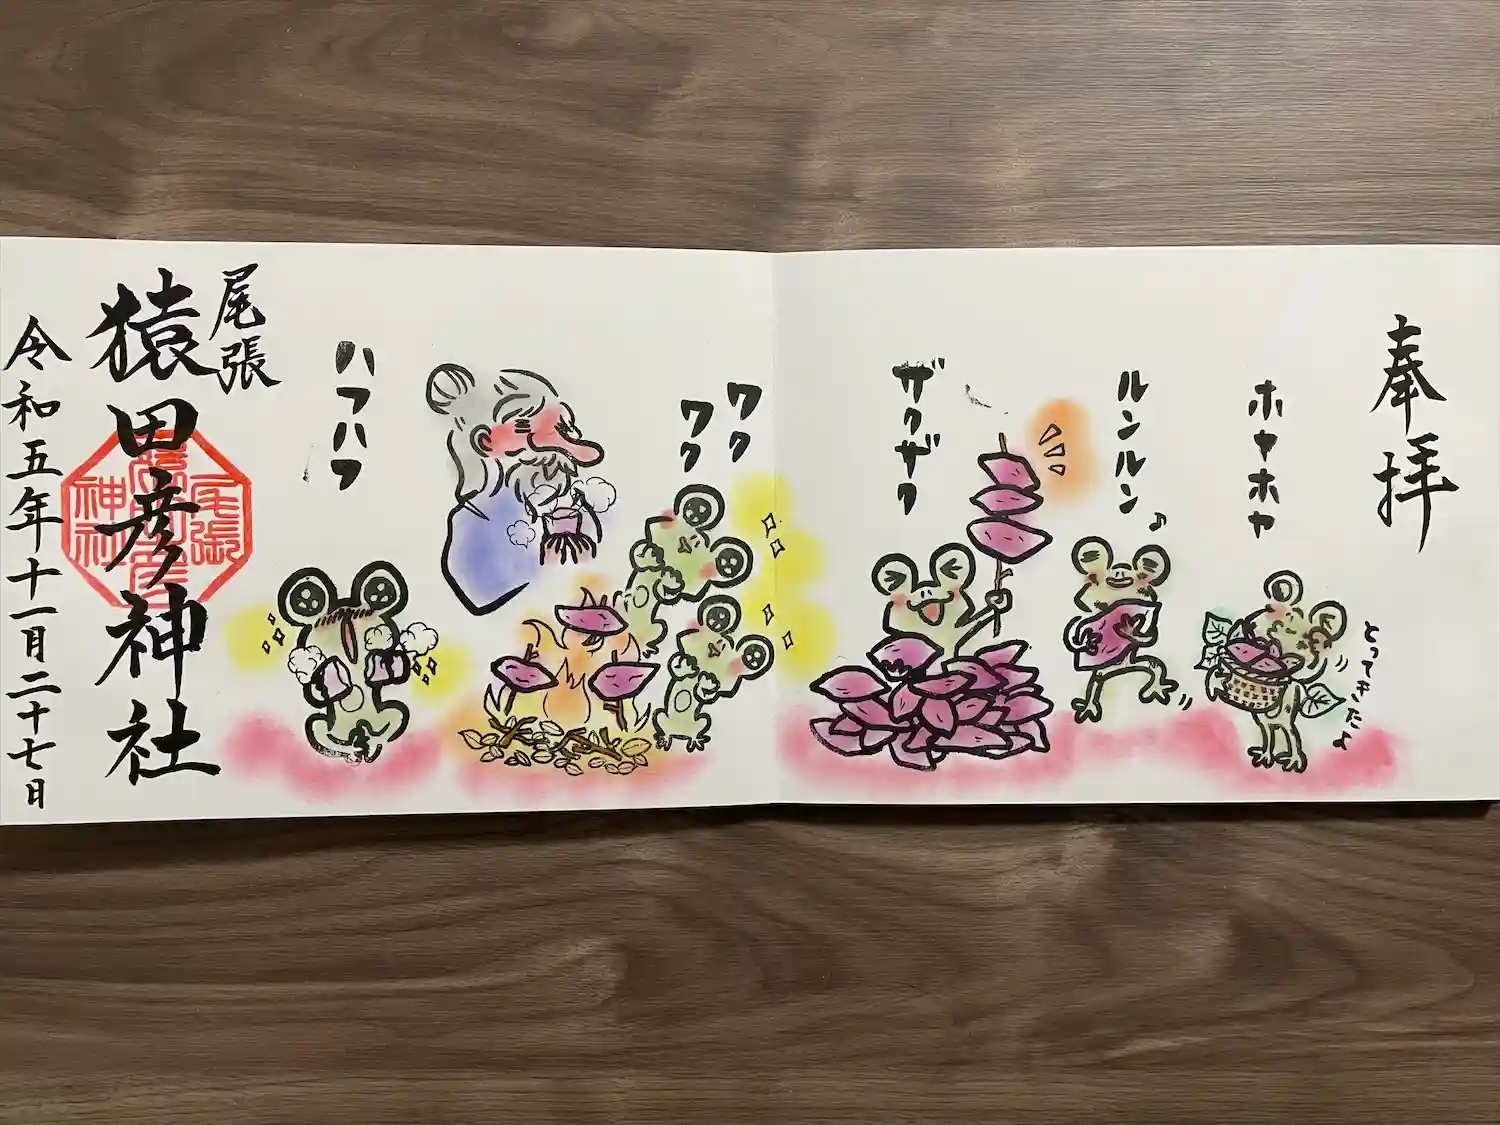 奉拝
ホヤホヤ
とってきたよ
ルンルン♪
ザクザク
ワク
ワク
ハフハフ
尾張
猿田彦神社
令和五年十一月二十七日
尾張
猿田彦
神社